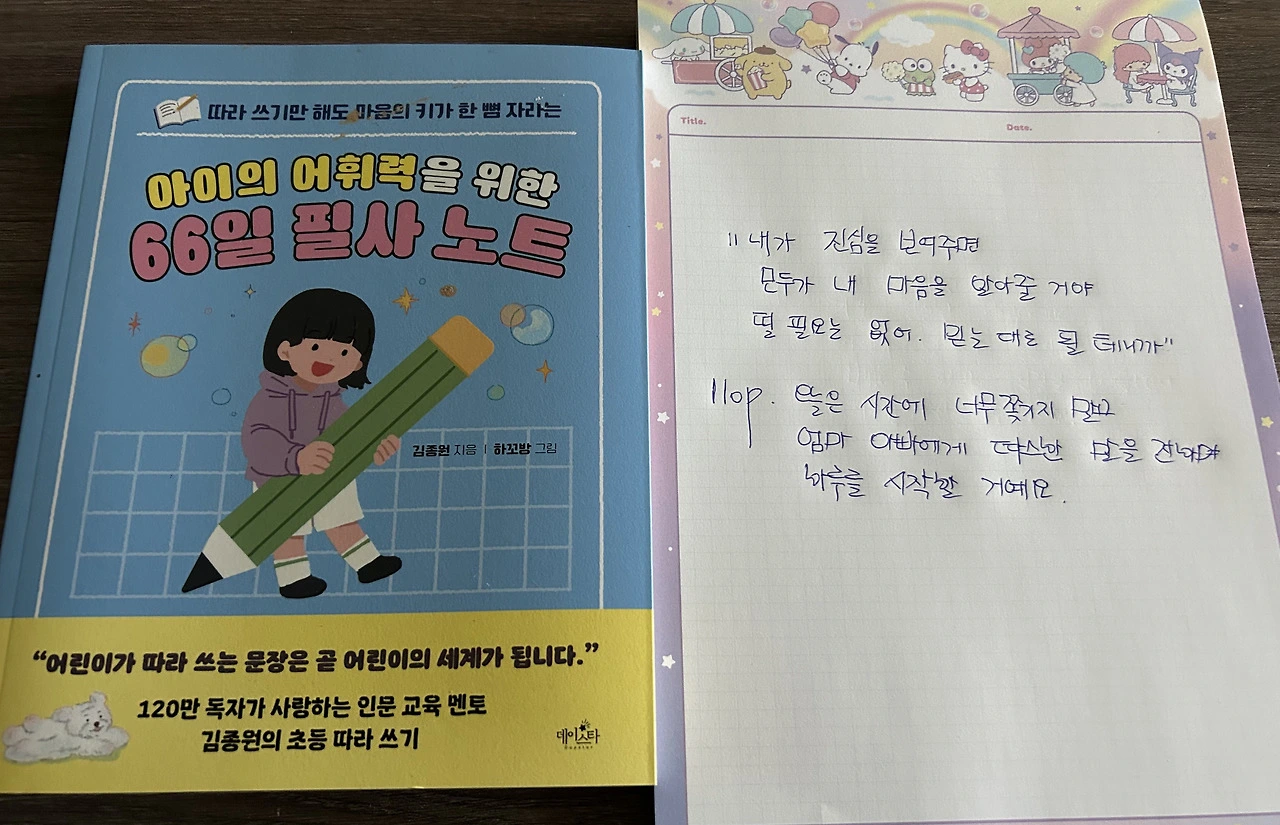 따라 쓰기만 해도 마음의 키가 한 뼘 자라는
아이의 어휘력을 위한
66일 필사 노트
김종원 지음 | 하꼬방 그림
“어린이가 따라 쓰는 문장은 곧 어린이의 세계가 됩니다.”
120만 독자가 사랑하는 인문 교육 멘토
김종원의 초등 따라 쓰기
데이스타
Title.
Date.
"내가 진심을 보여주면
모두가 내 마음을 알아줄 거야
떨 필요는 없어. 믿는 대로 될 테니까"
110p. 오늘은 시간에 너무 쫓기지 말고
엄마 아빠에게 따스한 말을 전하며
하루를 시작할 거예요.